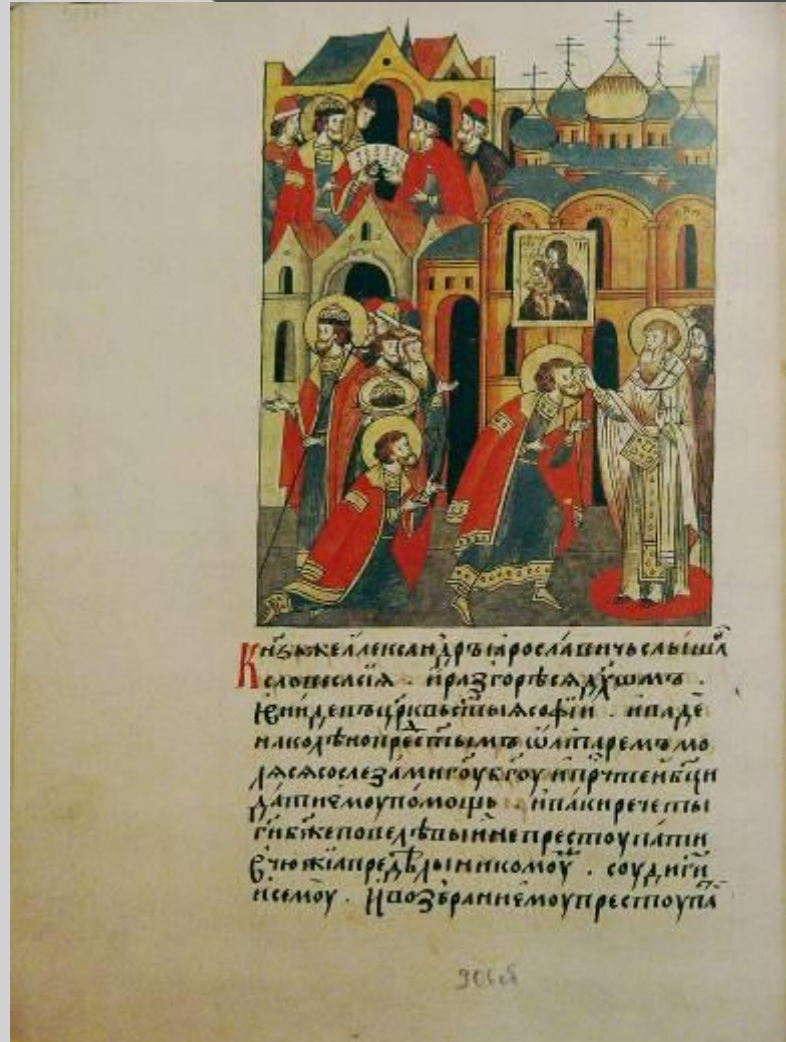 Кн҃зьжеАлександръꙗрославичьслышав
словесасиꙗ . ираꙁгорѣсядꙋшомъ .
Ивнидевъцр҃квьст҃ыꙗсофiи . ипаде
наколѣнопрест҃ымъѡлтаремъмо
лясясослеꙁамигоукб҃гоуипрч҃тѣиб҃ци
датиемоупомощь . ипакиречеты
г҃иб҃жеповелѣвыинепрестоупати
вчюжiапредѣлыникомоу . соудиги
исемоу . Ивоꙁбраниемоупрестоупа
906об